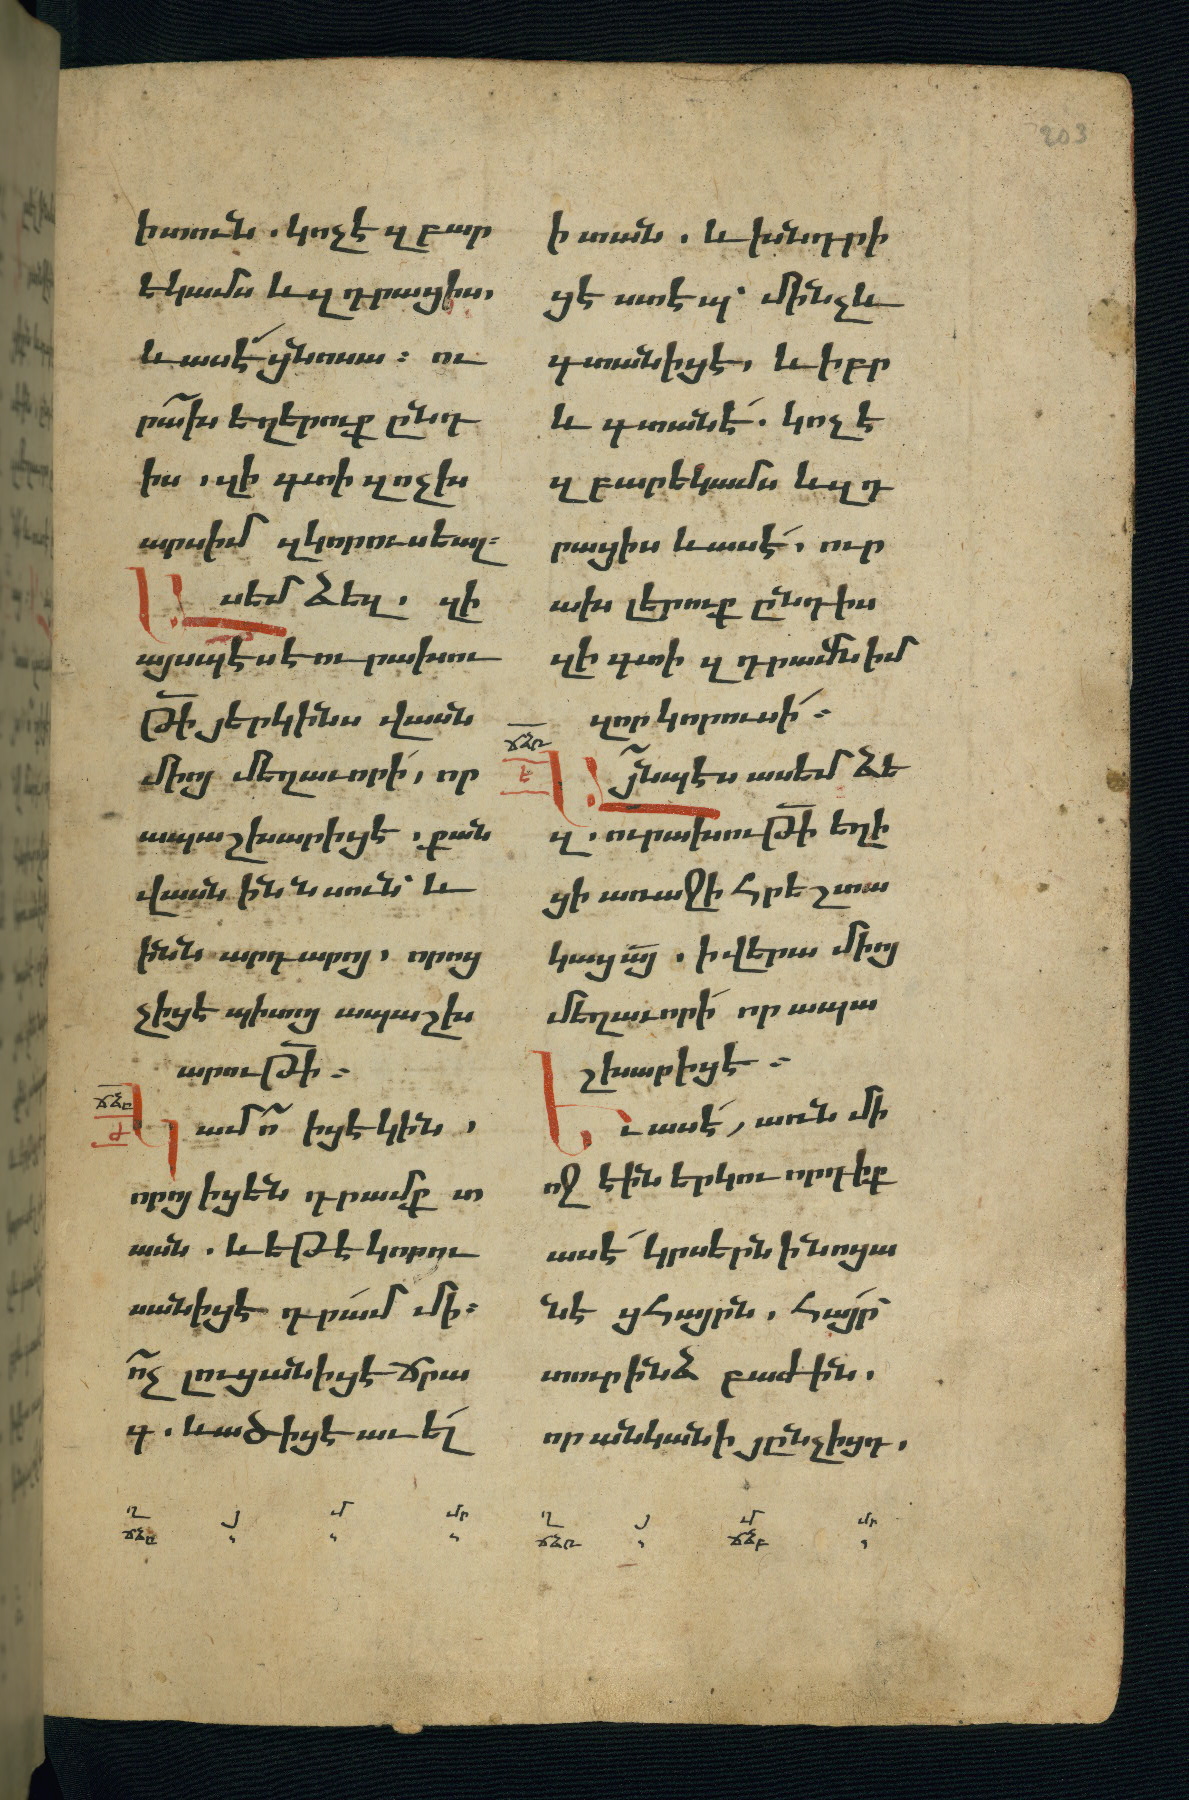 203
ի տուն . կոչէ զբար
եկամս և զդրացիս,
և ասէ՛ ցնոսա : ու
րախ եղերուք ընդ
իս , զի գտի զոչխ
արն իմ զկորուսեալ:
Ասեմ ձեզ . զի
այսպէս է ուրախու
թի յերկինս վասն
միոյ մեղաւորի, որ
ապաշխարիցէ , քան
վասն իննսուն՝ և
ինն արդարոց, որոց
չիցէ պիտոյ ապաշխ
արութի :
ՃՁԸ
Ժ
Կամ ո իցէ կին ,
որոյ իցեն դրամք տ
ասն . և եթէ կորու
սանիցէ դրամ մի :
ոչ լուցանիցէ ճրա
գ . և ածիցէ աւել
ի տան . և խնդրի
ցէ ստէպ՝ մինչև
գտանիցէ, և իբր
և գտանէ՛ . կոչէ
զբարեկամս և զդ
րացիս և ասէ՛, ուր
ախ լերուք ընդ իս
զի գտի զդրամն իմ
զոր կորուսի՛ :
ՃՁԹ
Է
Այնպէս ասեմ ձե
զ . ուրախութի եղի
ցի առաջի հրեշտա
կաց այ . ի վերա միոյ
մեղաւորի՛ որ ապա
շխարիցէ :
Եւ ասէ՛, առն մի
ոջ էին երկու որդիք
ասէ՛ կրսերն ի նոցա
նէ ցհայրն . հա՛յր
տուր ինձ բաժին .
որ անկանի յընչիցդ .
Ղ Յ Մ Մր
ՃՁԸ , , ,
Ղ Յ Մ Մր
ՃՁԹ , ՃՁԲ ,